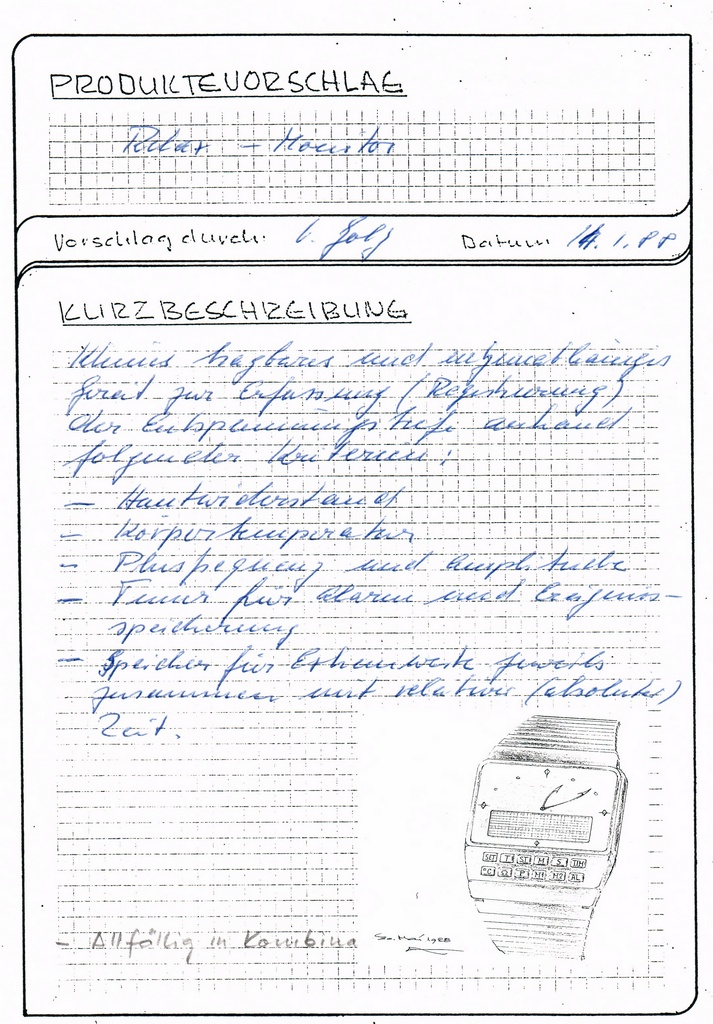 PRODUKTEVORSCHLAG
Relax - Monitor
Vorschlag durch: Datum 14.1.88
KURZBESCHREIBUNG
Kleines tragbares und netzunabhängiges
Gerät zur Erfassung (Registrierung)
der Entspannungstiefe anhand
folgender Kriterien:
- Hautwiderstand
- Körpertemperatur
- Pulsfrequenz und amplitude
- Timer für Alarm und Ereignis-
speicherung
- Speicher für Extremwerte jeweils
zusammen mit relativer (absoluter)
Zeit.
SET T SI M S TIM
°C O P M1 M2 AL
- Allfällig in Kombina
1988